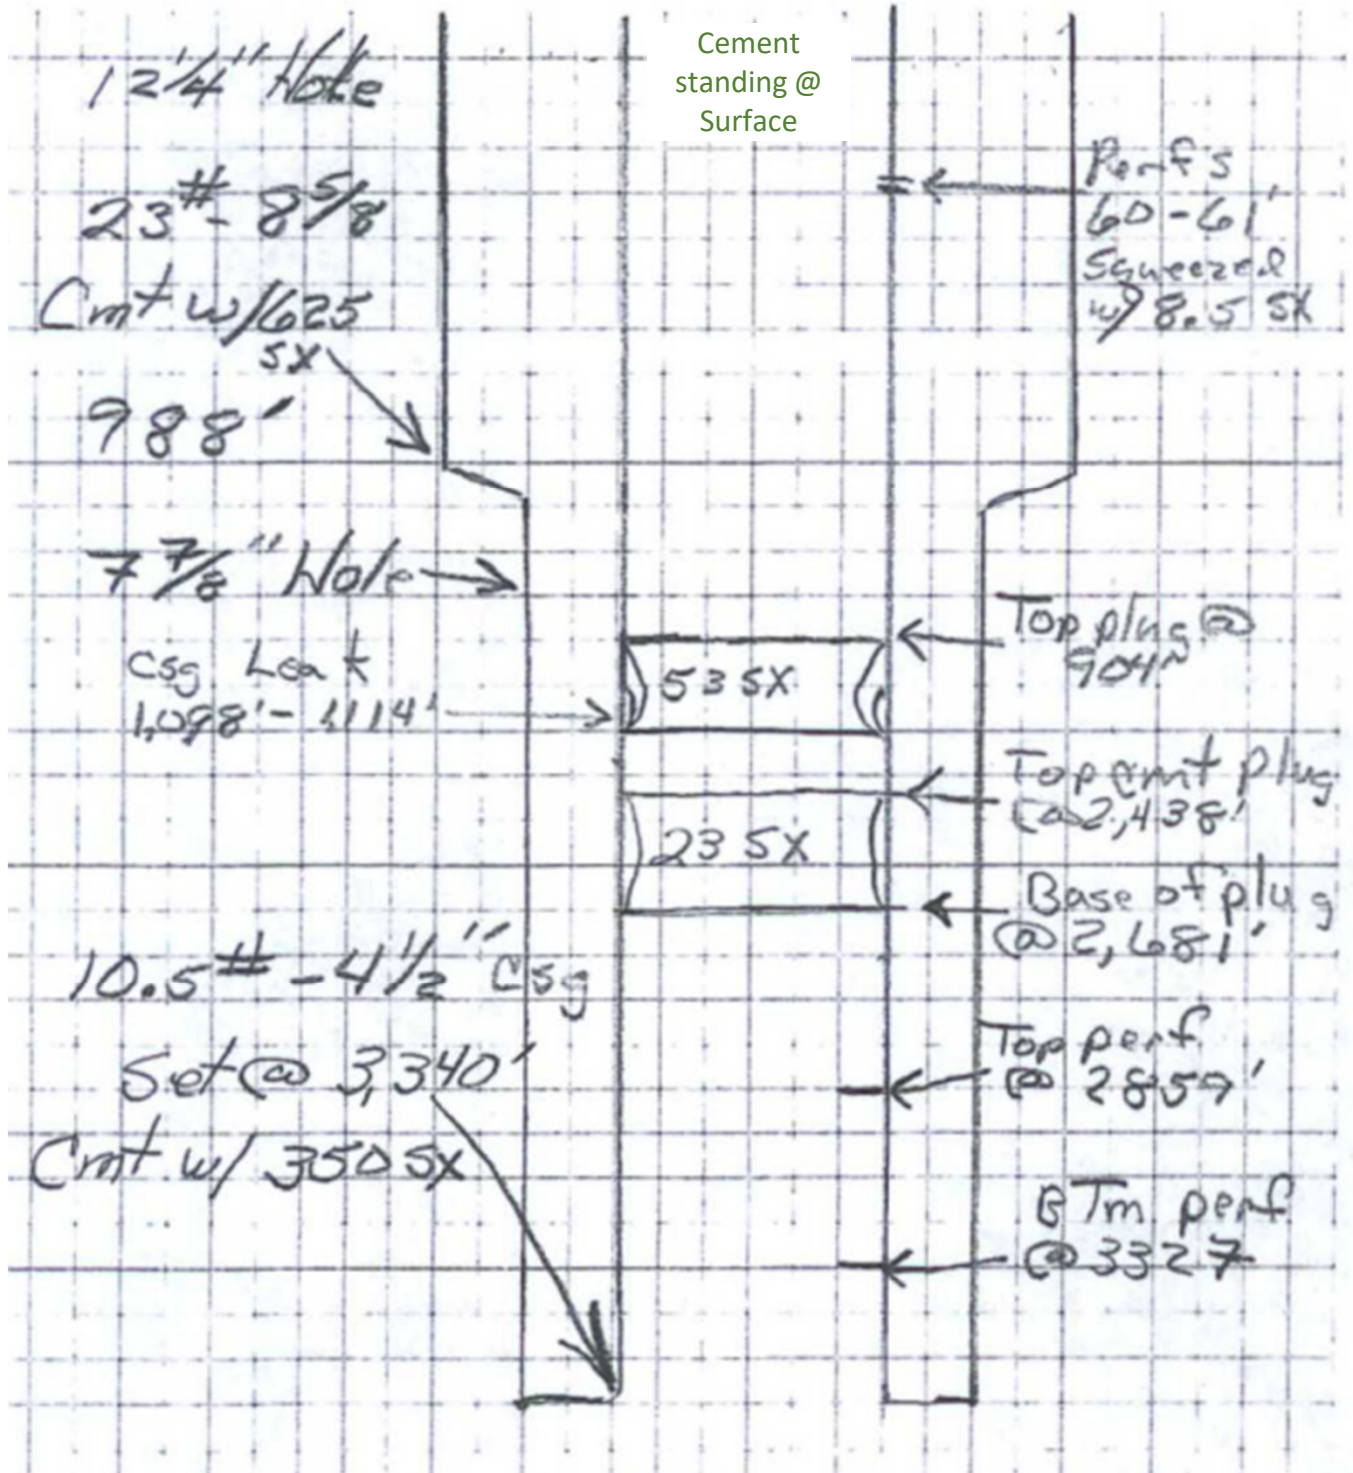 Cement
standing @
Surface
12 1/4" Hole
23# - 8 5/8
Cmt w/625
sx
988'
7 7/8" Hole
Csg Leak
1,098' - 1114'
10.5# - 4 1/2" Csg
Set @ 3,340'
Cmt w/ 350 sx
53 sx
23 sx
Perfs
60 - 61'
Squeezed
w/ 8.5 sx
Top plug @
904'
Top cmt plug
@ 2,438'
Base of plug
@ 2,681'
Top perf
@ 2859'
BTm perf
@ 3327